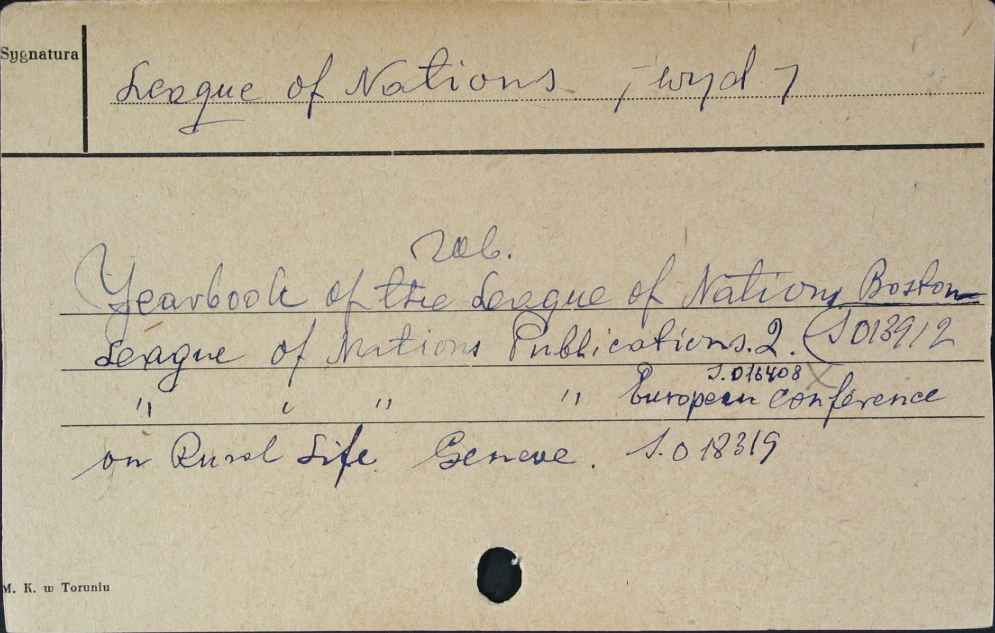 Sygnatura
League of Nations /wyd/
zob.
Yearbook of the League of Nations Boston
League of Nations Publications. 2. (S 013912
S.016408
" " " " European conference
on Rural Life. Geneve. S.018319
M. K. w Toruniu